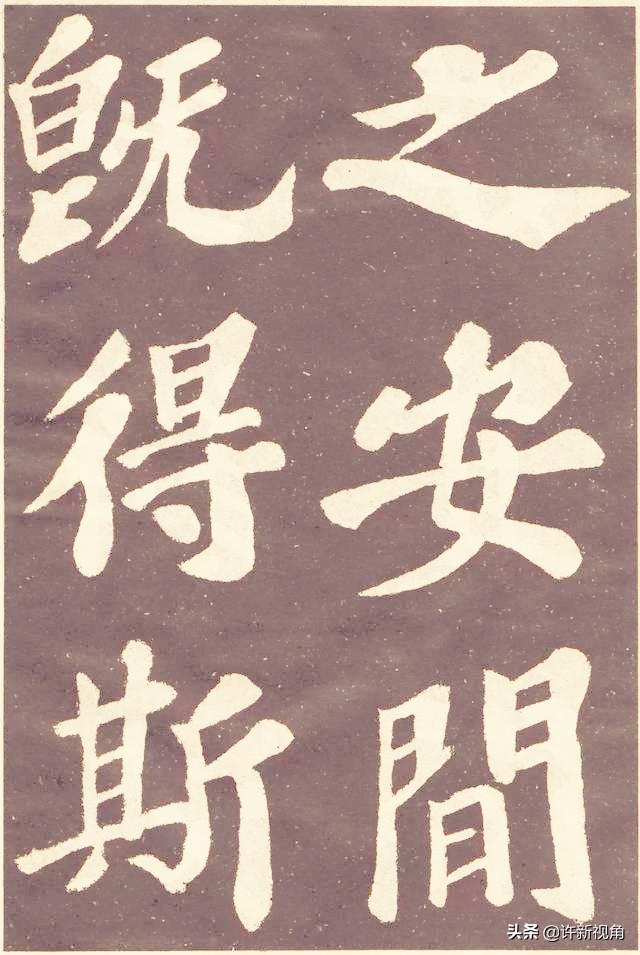 之安間
既得斯
头条 @许新视角